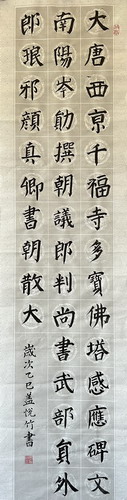 大唐西京千福寺多寶佛塔感應碑文
南陽岑勛撰朝議郎判尚書武部員外
郎琅邪顏真卿書朝散大
歲次乙巳蓋悅竹書